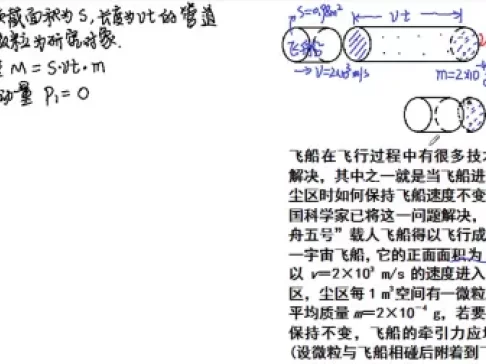 截面积为S,长度为vt的管道
微粒为研究对象.
M = S·vt·m
动量 P₁ = 0
S=0.98m²
vt
飞船
v=2×10³m/s
m=2×10
飞船在飞行过程中有很多技术
解决,其中之一就是当飞船进
尘区时如何保持飞船速度不变
国科学家已将这一问题解决,
舟五号”载人飞船得以飞行成
一宇宙飞船,它的正面面积为
以 v=2×10³ m/s 的速度进入
区,尘区每 1 m³空间有一微粒
平均质量 m=2×10⁻⁴ g,若要
保持不变,飞船的牵引力应增
(设微粒与飞船相碰后附着到飞